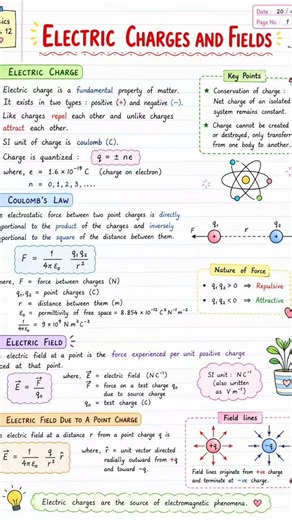 sics
. 12
Date : 20 /
Page No. : 1
ELECTRIC CHARGES AND FIELDS
ELECTRIC CHARGE
Electric charge is a fundamental property of matter.
It exists in two types : positive (+) and negative (−).
Like charges repel each other and unlike charges
attract each other.
SI unit of charge is coulomb (C).
Charge is quantized : q = ± ne
where, e = 1.6 × 10⁻¹⁹ C (charge on electron)
n = 0, 1, 2, 3, ....
Key Points
★ Conservation of charge :
Net charge of an isolated
system remains constant.
★ Charge cannot be created
or destroyed, only transfer
from one body to another.
COULOMB'S LAW
e electrostatic force between two point charges is directly
portional to the product of the charges and inversely
portional to the square of the distance between them.
F = 1/4πε₀ q₁q₂/r²
q₁ F q₂
r
here, F = force between charges (N)
q₁, q₂ = point charges (C)
r = distance between them (m)
ε₀ = permittivity of free space = 8.854 × 10⁻¹² C² N⁻¹ m⁻²
1/4πε₀ = 9 × 10⁹ N m² C⁻²
Nature of Force
• q₁q₂ > 0 ⇒ Repulsive
• q₁q₂ < 0 ⇒ Attractive
ELECTRIC FIELD
electric field at a point is the force experienced per unit positive charge
ced at that point.
E⃗ = F⃗/q₀
where, E⃗ = electric field (N C⁻¹)
F⃗ = force on a test charge q₀
due to source charge
q₀ = test charge (C)
SI unit : N C⁻¹
(also written
as V m⁻¹)
ELECTRIC FIELD DUE TO A POINT CHARGE
e electric field at a distance r from a point charge q is
E⃗ = 1/4πε₀ q/r² r̂
where, r̂ = unit vector directed
radially outward from +q
and toward −q.
Field lines
+q
−q
Field lines originate from +ve charge
and terminate at −ve charge.
Electric charges are the source of electromagnetic phenomena. ♡